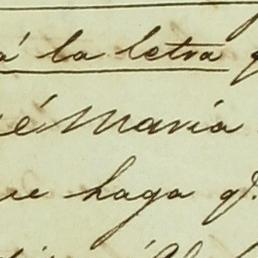 á la letra q
é Maria
re haga q.